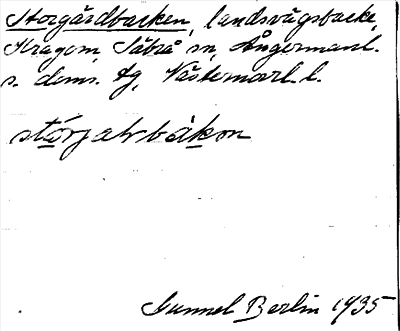 Storgårdbacken, landsvägsbacke,
Kragom, Säbrå sn, Ångermanl.
s. doms. tg, Västernorrl. l.
stórjalvbàkan
Gunnel Berlin 1935